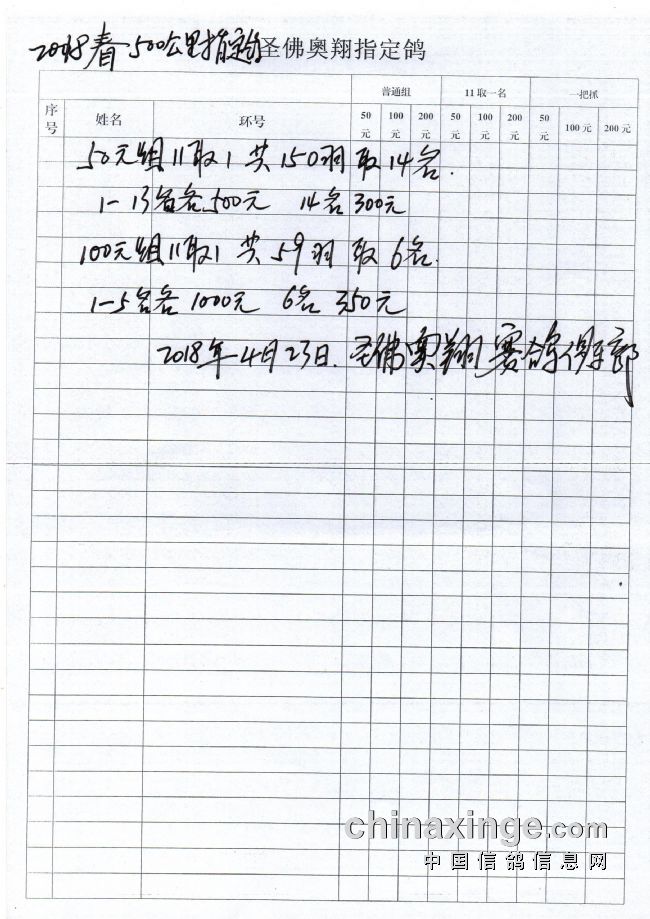 2018春 500公里指定鸽圣佛奥翔指定鸽
普通组 11取一名 一把抓
序号 姓名 环号 50元 100元 200元 50元 100元 200元 50元 100元 200元
50元组11取1 共150羽取14名.
1-13名各500元 14名300元
100元组11取1 共59羽 取6名.
1-5名各1000元 6名350元
2018年4月23日. 圣佛奥翔赛鸽俱乐部
chinaxinge.com
中国信鸽信息网